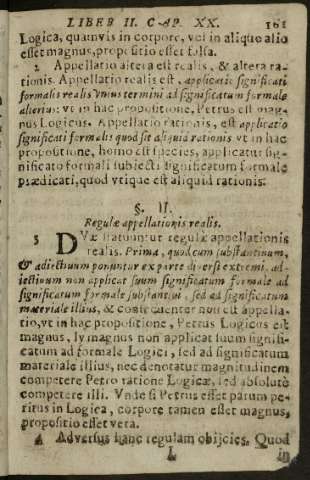 LIBER II. CAP. XX. 161
Logica, quamvis in corpore, vel in aliquo alio
esset magnus, propositio esset falsa.
2 Appellatio altera est realis, & altera ra-
tionis. Appellatio realis est, applicatio significati
formalis realis vnius termini ad significatum formale
alterius: vt in hac propositione, Petrus est mag-
nus Logicus. Appellatio rationis, est applicatio
significati formalis quod sit aliquid rationis vt in hac
propositione, homo est species, applicatur sig-
nificato formali subiecti significatum formale
prædicati, quod vtique est aliquid rationis.
§. II.
Regulæ appellationis realis.
3 DVæ statuuntur regulæ appellationis
realis. Prima, quod cum substantiuum,
& adiectiuum ponuntur ex parte diuersi extremi, ad-
iectiuum non applicat suum significatum formale ad
significatum formale substantiui, sed ad significatum
materiale illius, & consequenter non est appella-
tio, vt in hac propositione, Petrus Logicus est
magnus, ly magnus non applicat suum signifi-
catum ad formale Logici, sed ad significatum
materiale illius, nec denotatur magnitudinem
competere Petro ratione Logicæ, sed absolutè
competere illi. Vnde si Petrus esset parum pe-
ritus in Logica, corpore tamen esset magnus,
propositio esset vera.
4 Aduersus hanc regulam obijcies. Quod
L in